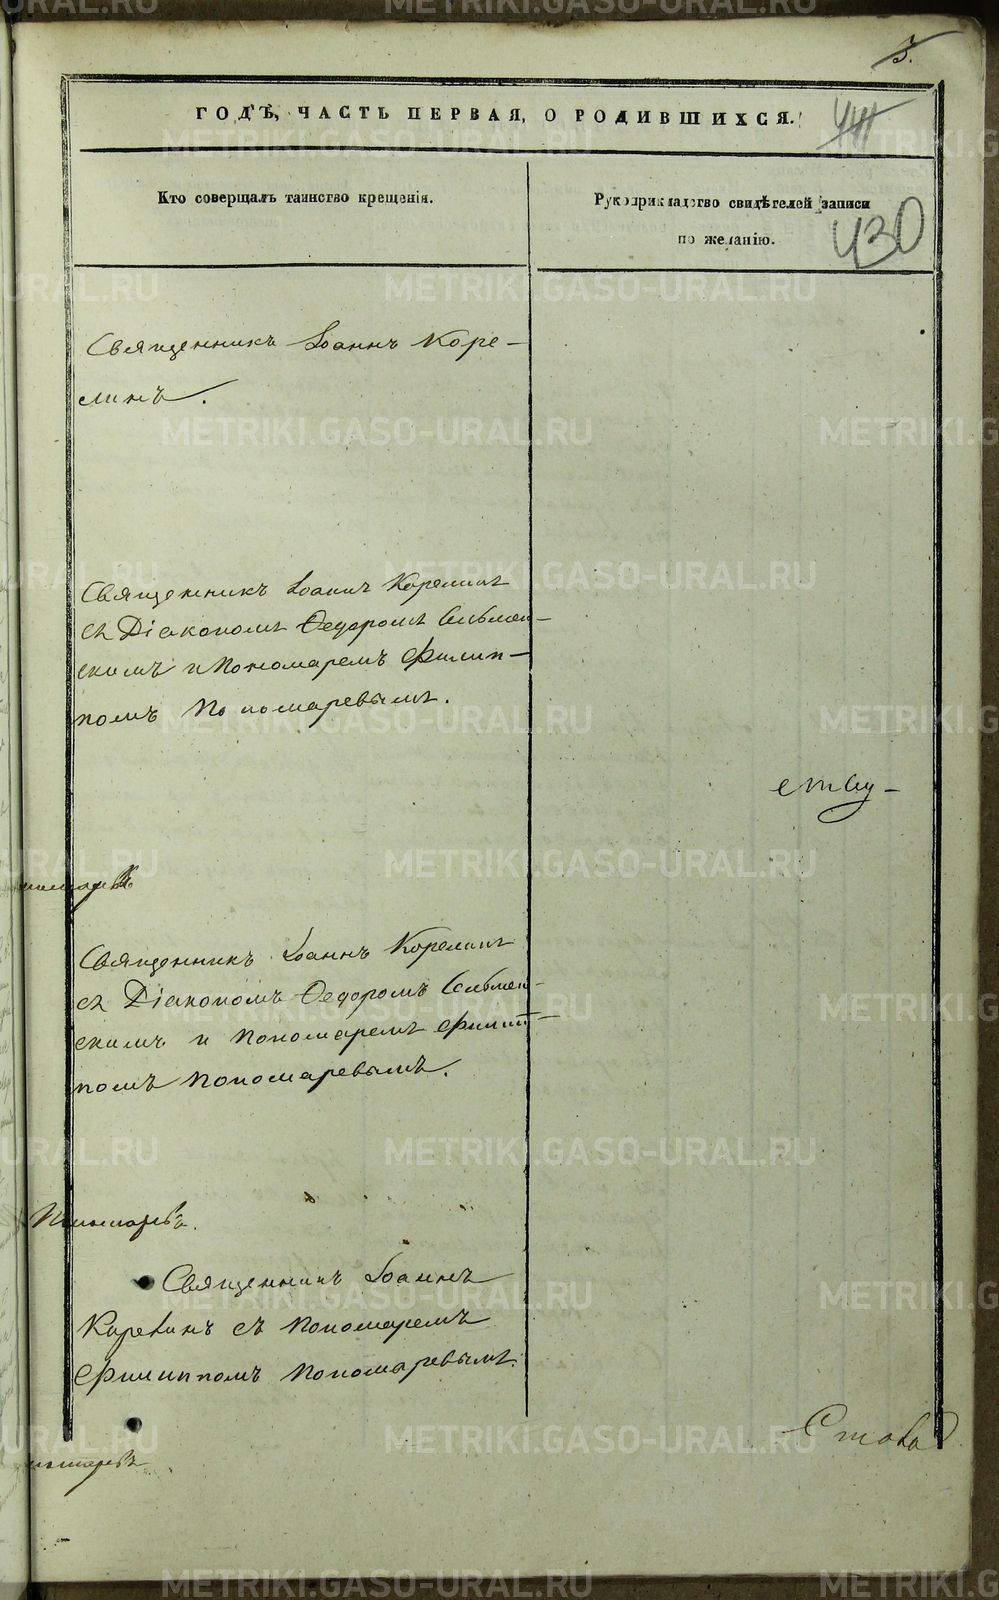 3.
ГОДЪ, ЧАСТЬ ПЕРВАЯ, О РОДИВШИХСЯ.
Кто совершалъ таинство крещенія.
Рукоприкладство свидѣтелей записи
по желанію.
430
Священникъ Іоаннъ Коре-
линъ.
Священникъ Іоаннъ Корелинъ
съ Діакономъ Ѳедоромъ Сельмен-
скимъ и Пономаремъ Филип-
помъ Пономаревымъ.
ству-
Священникъ Іоаннъ Корелинъ
съ Діакономъ Ѳедоромъ Сельмен-
скимъ и Пономаремъ Филип-
помъ Пономаревымъ.
Пономаревъ.
Священникъ Іоаннъ
Корелинъ съ Пономаремъ
Филиппомъ Пономаревымъ.
METRIKI.GASO-URAL.RU